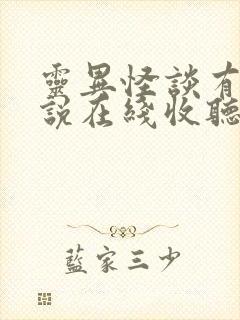 靈異怪談有
說在綫收聽
藍家三少